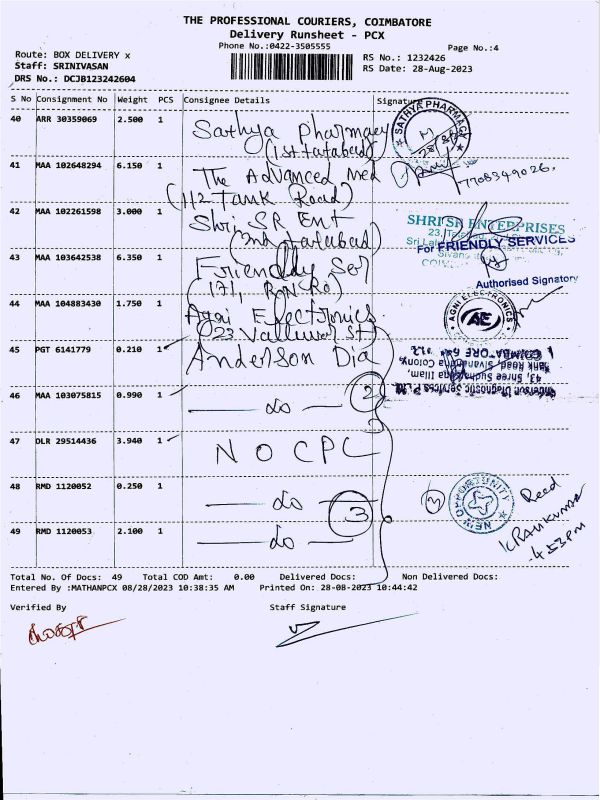 THE PROFESSIONAL COURIERS, COIMBATORE
Delivery Runsheet - PCX
Phone No.:0422-3505555
Page No.:4
Route: BOX DELIVERY x
Staff: SRINIVASAN
DRS No.: DCJB123242604
RS No.: 1232426
RS Date: 28-Aug-2023
S No Consignment No Weight PCS Consignee Details Signature
40 ARR 30359069 2.500 1 Sathya Pharmacy
(1st tatabad)
SATHYA PHARMACY
41 MAA 102648294 6.150 1 The Advanced Med
(112 Tank Road)
7708349026.
42 MAA 102261598 3.000 1 Shri SR Ent
(3rd tatabad)
SHRI SR ENTERPRISES
43 MAA 103642538 6.350 1 Friendly Ser
(171, R.N. Rd)
For FRIENDLY SERVICES
Authorised Signatory
44 MAA 104883430 1.750 1 Agni Electronics
(23 Valluvar St)
AGNI ELECTRONICS
AE
45 PGT 6141779 0.210 1 Anderson Dia
Anderson Diagnostic Services P. Ltd
43, Shree Illam,
Tank Road, Sivanandha Colony,
COIMBATORE
46 MAA 103075815 0.990 1 do 2
47 DLR 29514436 3.940 1 NO CPC
48 RMD 1120052 0.250 1 do
3
3
NEW OPPORTUNITY
Recd
49 RMD 1120053 2.100 1 do
4.53 PM
Total No. Of Docs: 49 Total COD Amt: 0.00 Delivered Docs: Non Delivered Docs:
Entered By :MATHANPCX 08/28/2023 10:38:35 AM Printed On: 28-08-2023 10:44:42
Verified By Staff Signature